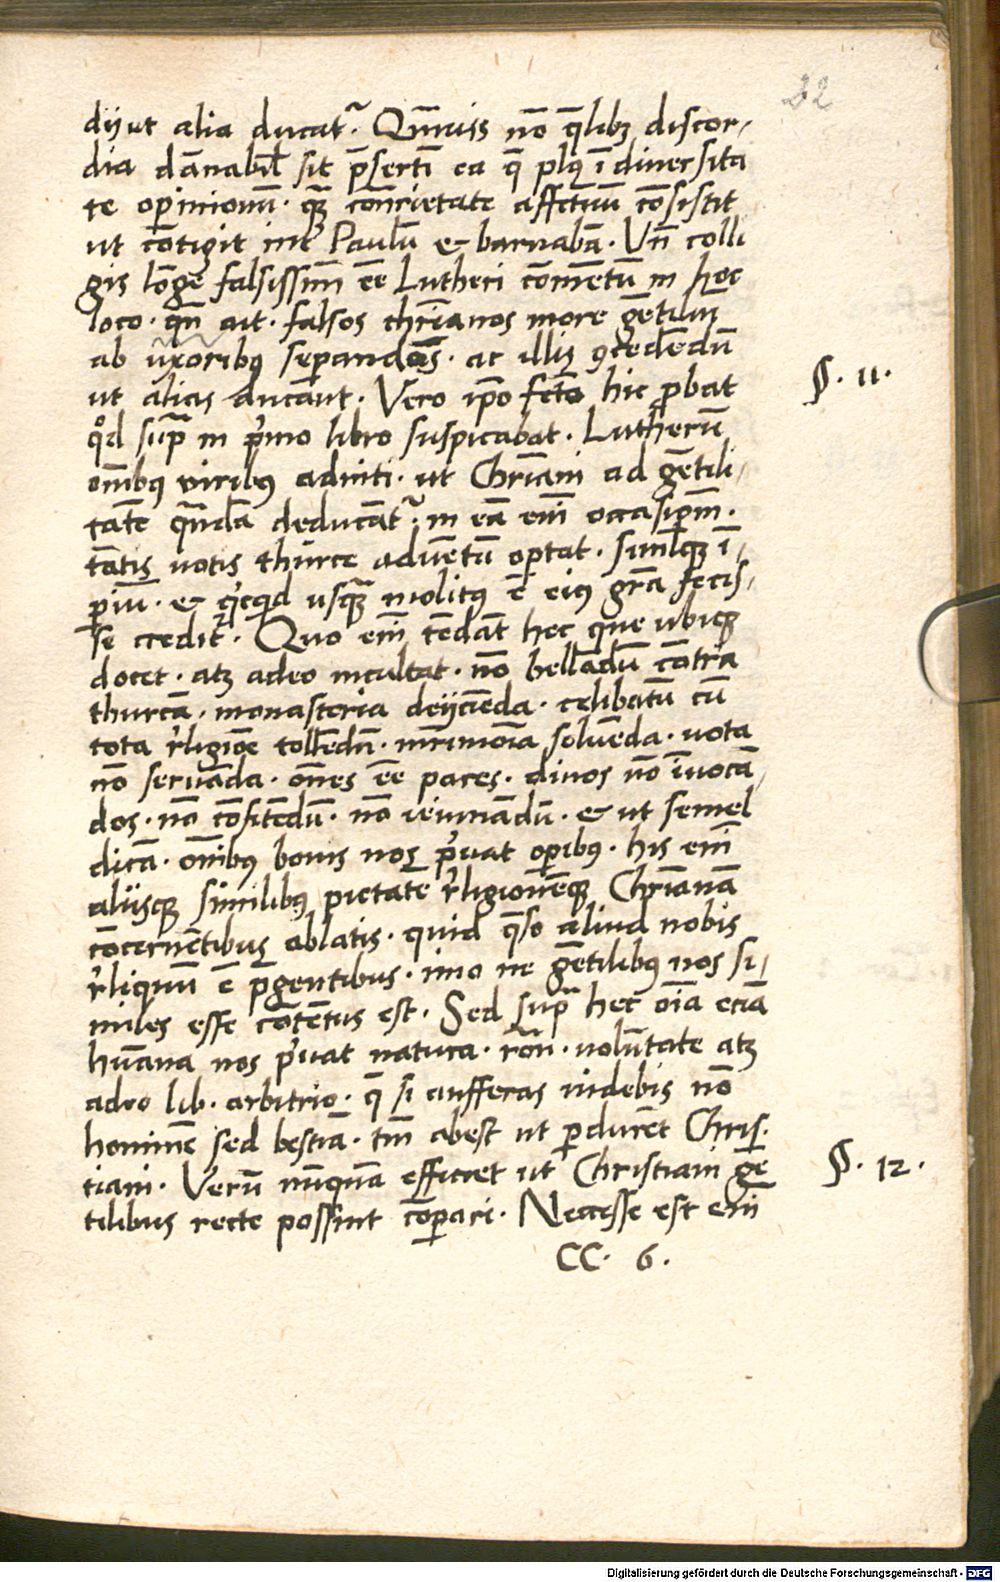 22
dij ut alia ducat᷒. Qm̄uis nō q̄libꝫ discor-
dia dānabil̄ sit p̄sertī ea q̄ plꝰ ī diuersita
te opinionū. quā cōtrietate affectuū cōsistit
ut cōtigit int᷒ Paulū et barnabā. Vn̄ colli
gis lōge falsissim̄ ēe Lutheri cōmētū in hoc
loco. qn̄ ait. falsos chrīanos more gētiliū
ab uxoribꝰ sepandos. ac illis ꝯcedēdū
ut alias ducāut. Vero ip̄o fcto hic probat
qͦd sup̄ in p̄mo libro suspicabat. Lutherū
om̄ibꝰ viribꝰ adniti. ut Chrīani ad gētili-
tatē quādā deducāt᷒. in eā eni̅ occasiōm̄.
tātis uotis thurce aduētū optat. simulqꝫ ī-
periū. et qͥcqͥd usqꝫ molitꝰ ē eiꝰ grā fecis-
se credit᷒. Quo eni̅ tēdāt hec que ubiqꝫ
docet. atꝫ adeo incultat. nō bellādū cōtra
thurcā. monasteria deijciēda. celibatū cū
tota r̄ligiōe tollēdū. m̄rimōia soluēda. uota
nō seruāda. om̄es ēe pares. diuos nō īuocā-
dos. nō cōfitēdū. nō ieiunādū. et ut semel
dicā. om̄ibꝰ bonis nos p̄uat opibꝰ. his eni̅
alijsqꝫ similibꝰ pietatē r̄ligionēqꝫ Chrīanā
cōcernētibus ablatis. quid q̄so aliud nobis
r̄liquū ē p̄gentibus. imo ne gētilibꝰ nos si-
miles esse cōtētus est. Sed sup̄ hec oīa etiā
hūana nos p̄uat natura. rōn̄. volūtate atꝫ
adeo lib. arbitrio. q̄ si aufferas uidebis nō
hominē sed bestiā. tm̄ abest ut pdurēt Chris.
tiani. Verū nūquā efficiet ut Christiani gē
tilibus recte possint cōpari. Necesse est eni̅
CC. 6.
§. 11.
§. 12.
Digitalisierung gefördert durch die Deutsche Forschungsgemeinschaft - DFG